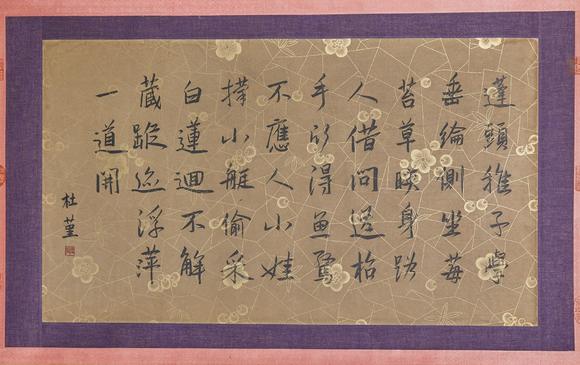 蓬頭稚子學
垂綸側坐莓
苔草映身路
人借問遥招
手得魚驚
不應人小娃
撑小艇偷采
白蓮迴不解
蔵蹤迹浮萍
一道開
杜堇